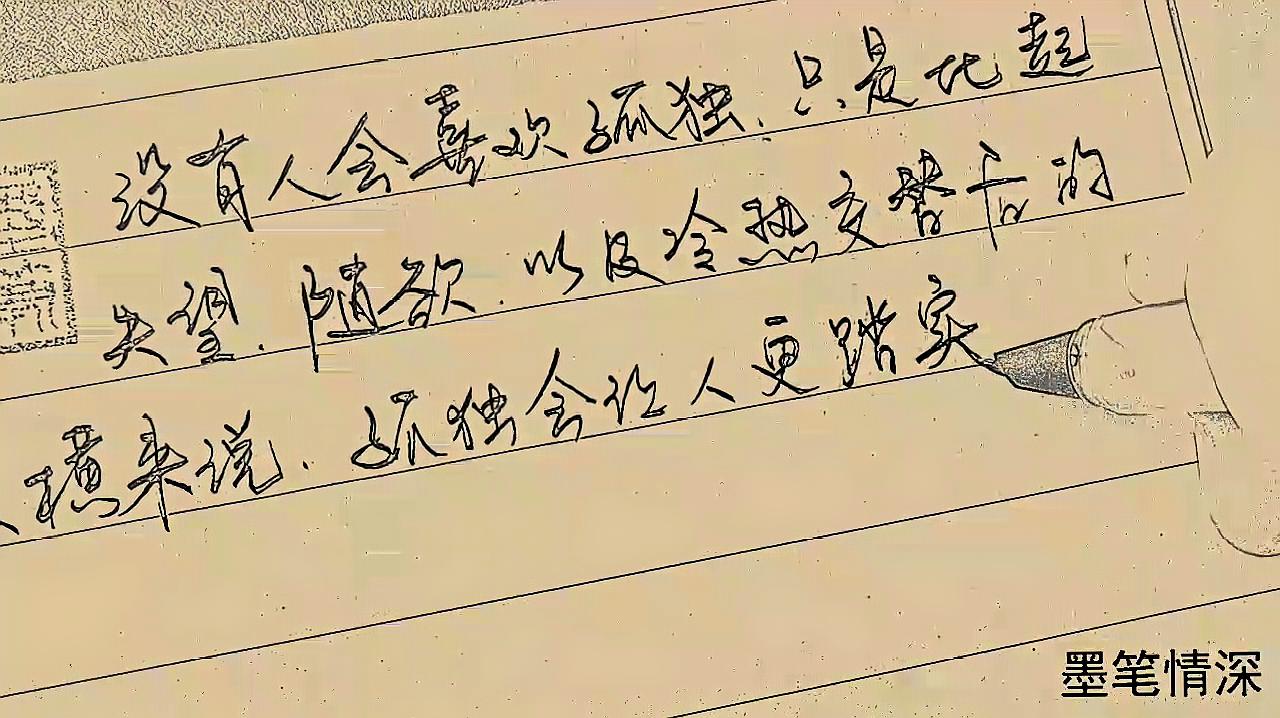 没有人会喜欢孤独.只是比起
失望.随欲.以及冷热交替后的
来说.孤独会让人更踏实
墨笔情深